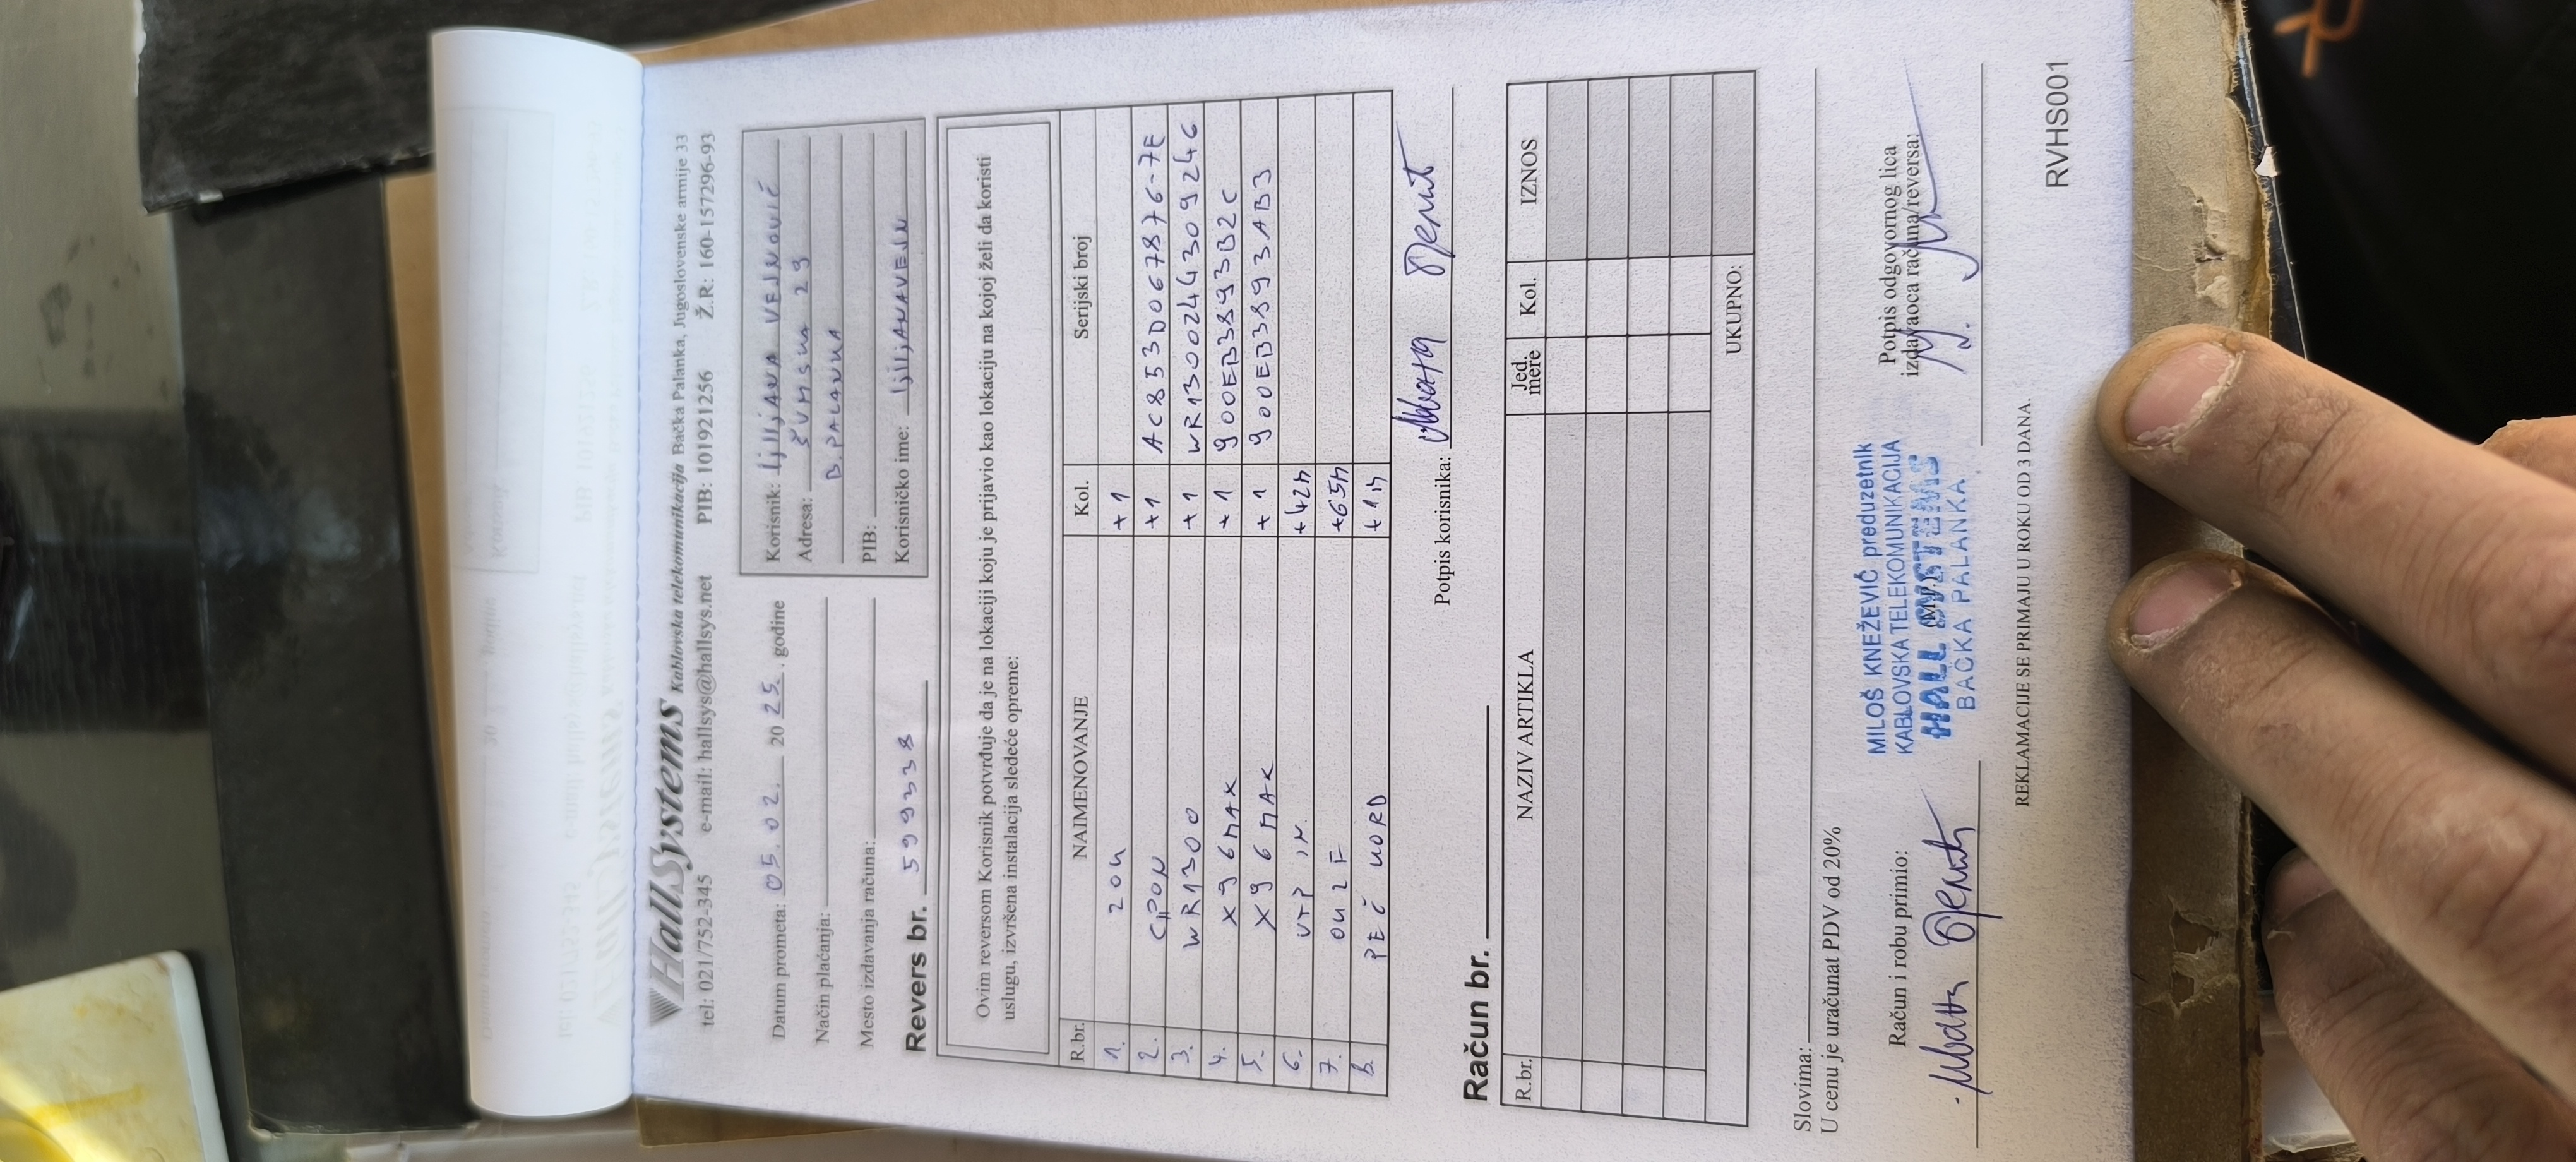 HallSystems Kablovska telekomunikacija Bačka Palanka, Jugoslovenske armije 33
tel: 021/752-345 e-mail: hallsys@hallsys.net PIB: 101921256 Ž.R: 160-157296-93
Datum prometa: 05.02. 2025. godine
Način plaćanja:
Mesto izdavanja računa:
Revers br. 599338
Korisnik: ljiljANA VEJNOVIĆ
Adresa: ŠUMSKA 29
B.PALANKA
PIB:
Korisničko ime: ljiljANAVEJN
Ovim reversom Korisnik potvrđuje da je na lokaciji koju je prijavio kao lokaciju na kojoj želi da koristi
uslugu, izvršena instalacija sledeće opreme:
R.br. NAIMENOVANJE Kol. Serijski broj
1. ZOK +1
2. GPON +1 AC853D067876-7E
3. WR1300 +1 WR1300244309246
4. X96MAX +1 900EB3893B2C
5. X96MAX +1 900EB3893AB3
6. UTP IN +42m
7. OK2F +65m
8. PEČ KORD +1m
Potpis korisnika:
Račun br.
R.br. NAZIV ARTIKLA Jed. mere Kol. IZNOS
UKUPNO:
Slovima:
U cenu je uračunat PDV od 20%
Račun i robu primio:
Potpis odgovornog lica
izdavaoca računa/reversa:
MILOŠ KNEŽEVIĆ preduzetnik
KABLOVSKA TELEKOMUNIKACIJA
HALL SYSTEMS
BAČKA PALANKA
REKLAMACIJE SE PRIMAJU U ROKU OD 3 DANA.
RVHS001